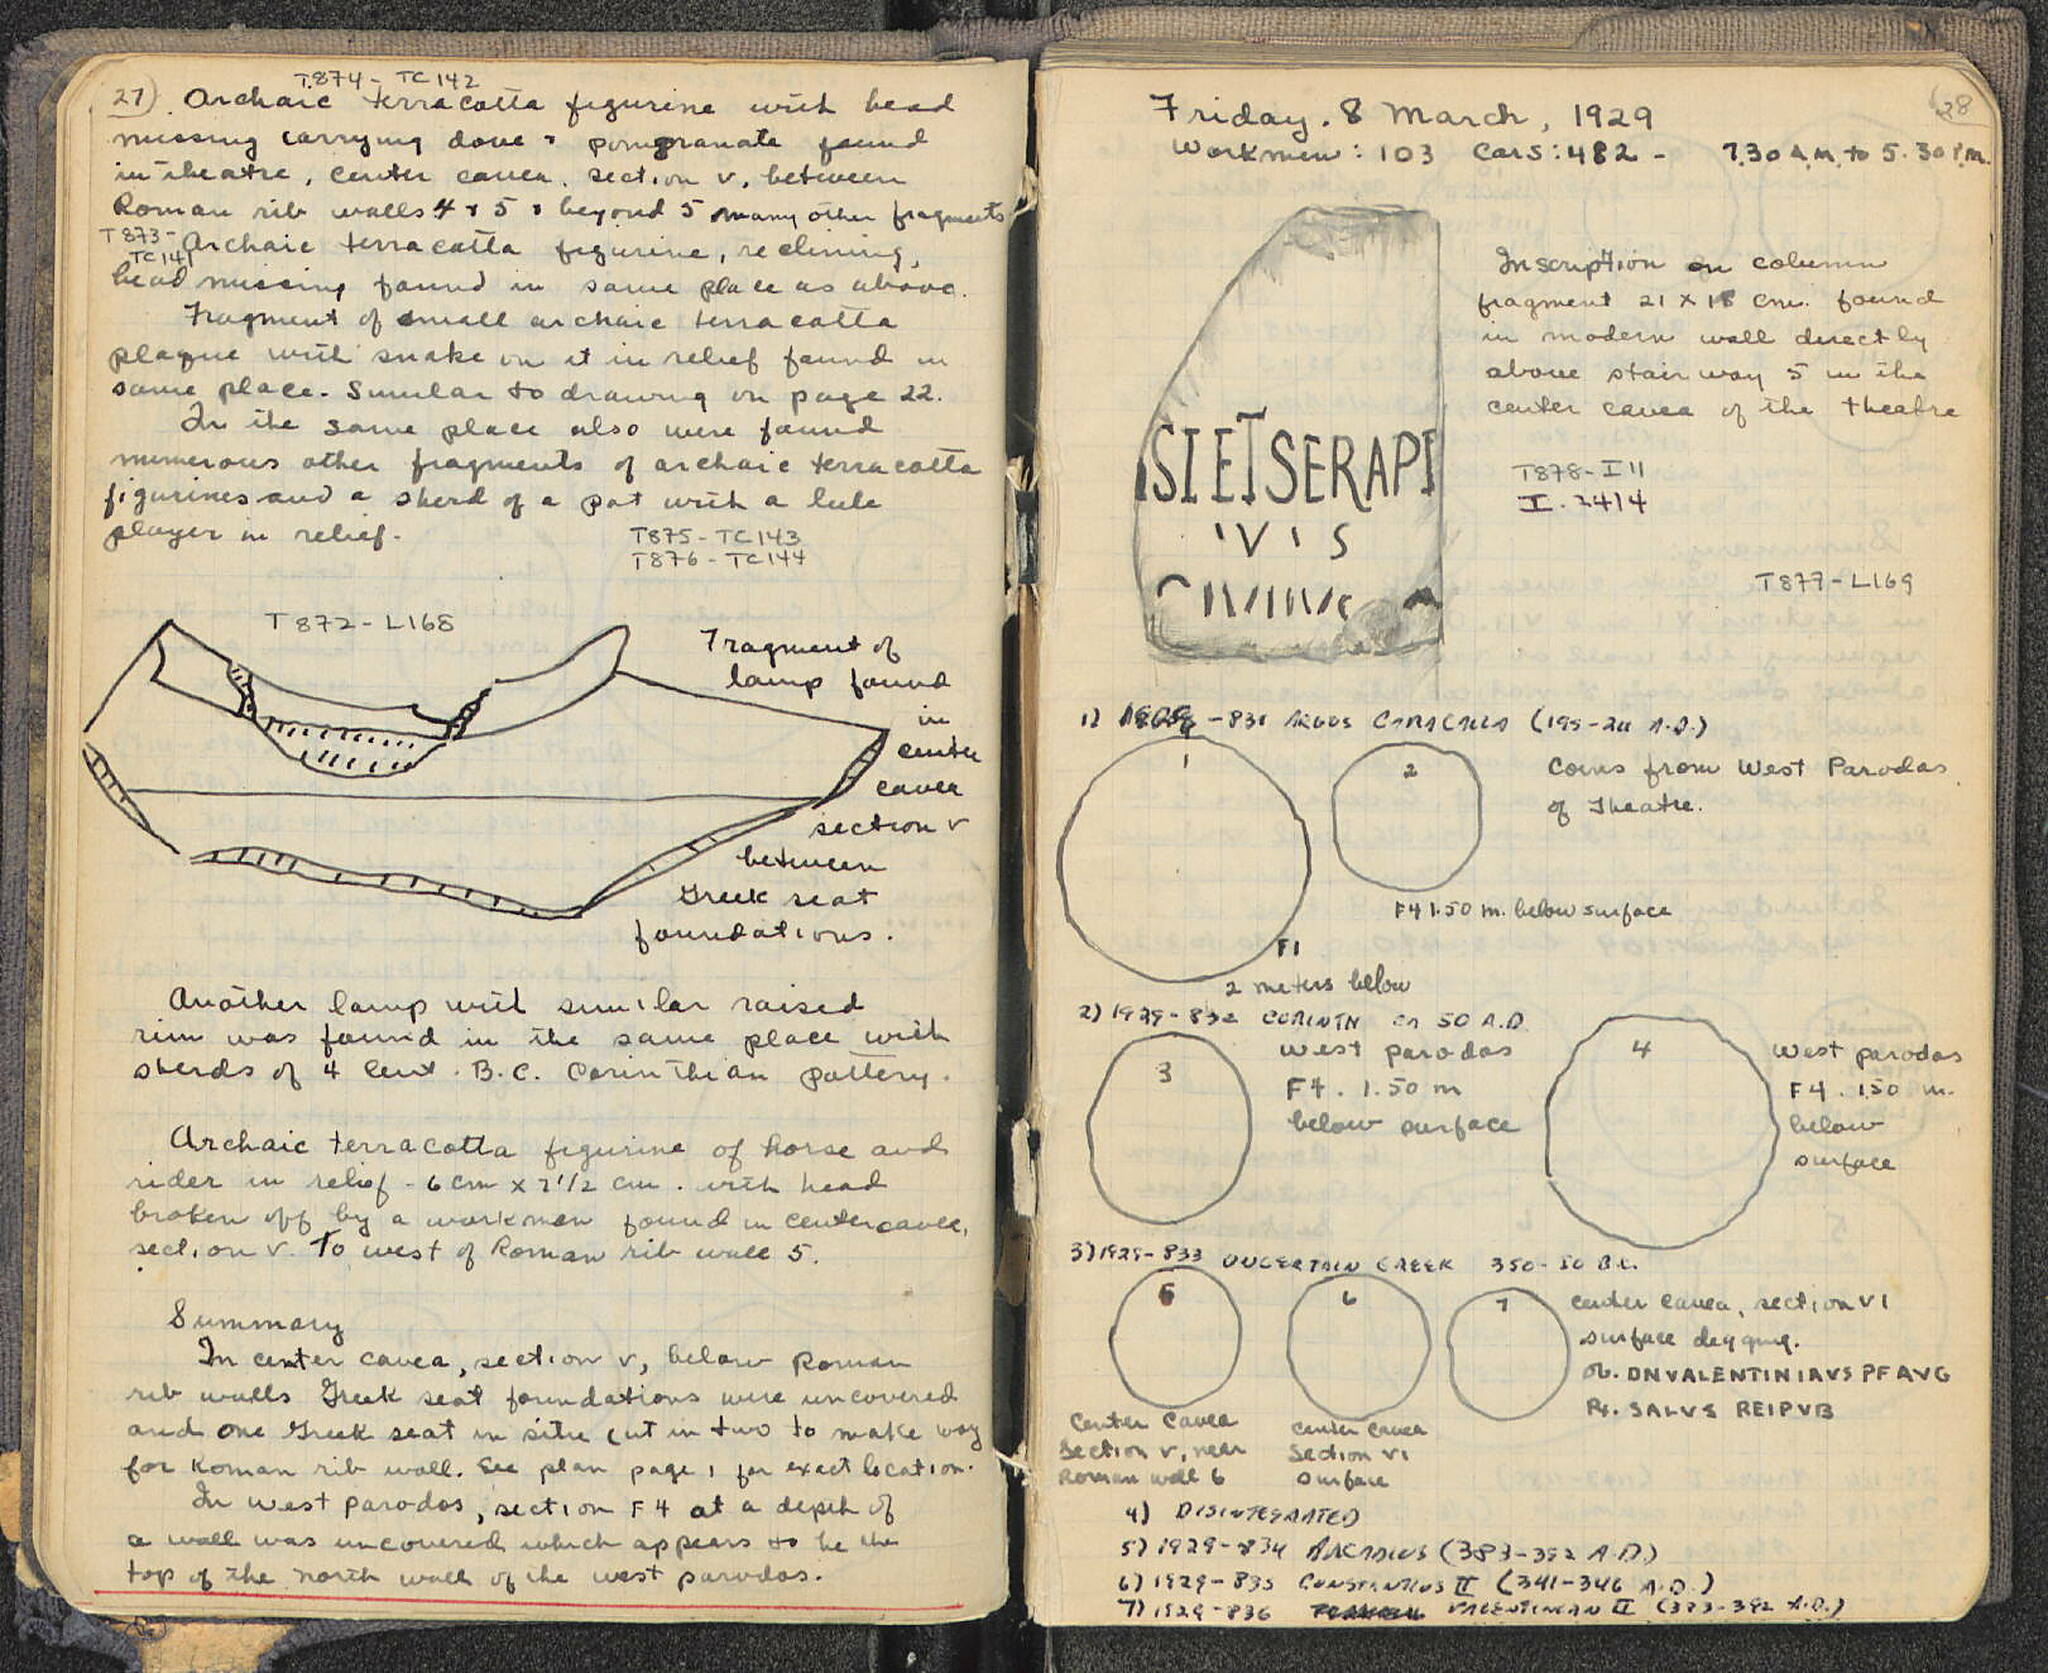 27)
T874 - TC142
Archaic terracotta figurine with head
missing carrying dove & pomgranate found
in theatre, center cavea, section V, between
Roman rib walls 4 & 5 & beyond 5 many other fragments
T873 -
TC141
Archaic terracotta figurine, reclining,
head missing found in same place as above.
Fragment of small archaic terracotta
plaque with snake on it in relief found in
same place. Similar to drawing on page 22.
In the same place also were found
numerous other fragments of archaic terracotta
figurines and a sherd of a pot with a lute
player in relief.
T875 - TC143
T876 - TC144
T872 - L168
Fragment of
lamp found
in
center
cavea
section V
between
Greek seat
foundations.
Another lamp with similar raised
rim was found in the same place with
sherds of 4 Cent. B.C. Corinthian pottery.
Archaic terracotta figurine of horse and
rider in relief - 6 cm x 7 1/2 cm. with head
broken off by a workman found in center cavea,
section V. To west of Roman rib wall 5.
Summary
In center cavea, section V, below Roman
rib walls Greek seat foundations were uncovered
and one Greek seat in situ cut in two to make way
for Roman rib wall. See plan page 1 for exact location.
In west parodos, section F4 at a depth of
a wall was uncovered which appears to be the
top of the north wall of the west parodos.
28
Friday. 8 March, 1929
Workmen: 103 Cars: 482 - 7.30 A.M. to 5.30 P.M.
Inscription on column
fragment 21 x 18 cm. found
in modern wall directly
above stairway 5 in the
center cavea of the theatre
SI ET SERAPI
V I S
T878 - I 11
I. 2414
T877 - L169
1) 1929 - 831 ARGOS CARACALLA (195-211 A.D.)
1
2
Coins from West Parodos
of Theatre.
F4 1.50 m. below surface
F1
2 meters below
2) 1929 - 832 CORINTH ca 50 A.D.
3
West parodos
F4. 1.50 m
below surface
4
West parodos
F4. 1.50 m.
below
surface
3) 1929 - 833 UNCERTAIN GREEK 350-50 B.C.
5
6
7
center cavea, section VI
surface digging.
ob. DNVALENTINIAVS PF AVG
R. SALVS REIPVB
Center Cavea
Section V, near
Roman wall 6
center cavea
Section VI
surface
4) DISINTEGRATED
5) 1929-834 ARCADIUS (383-392 A.D.)
6) 1929-835 CONSTANTIUS II (341-346 A.D.)
7) 1929-836 VALENTINIAN II (383-392 A.D.)